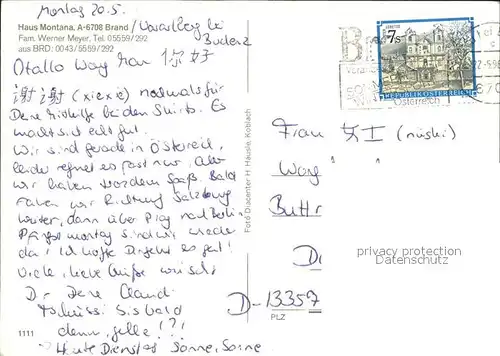 Montag 20.5.
Haus Montana, A-6708 Brand / Vorarlberg bei
Fam. Werner Meyer, Tel. 05559/292
Budenz
aus BRD: 0043/5559/292
Otallo Wang 你好
谢谢 (xiexie) nochmals für
Deine Mithilfe bei den Shirts. Es
macht sich echt gut.
Wir sind gerade in Österreich,
leider regnet es fast nur. Aber
wir haben trotzdem Spaß. Bald
fahren wir Richtung Salzburg
weiter, dann über Prag nach Berlin.
Pfingstmontag sind wir wieder
da! Ich hoffe Dir geht es gut!
Viele, liebe Grüße wünscht
Dir Deine Claudi
Tschüssi. Bis bald
denn, gelle!?!
Heute Dienstag Sonne, Sonne
1111
Foto Diacenter H. Häusle, Koblach
7 S
REPUBLIK ÖSTERREICH
Österreich
Frau (nüshi)
Wang
Buttr
D-13357
PLZ
privacy protection
Datenschutz